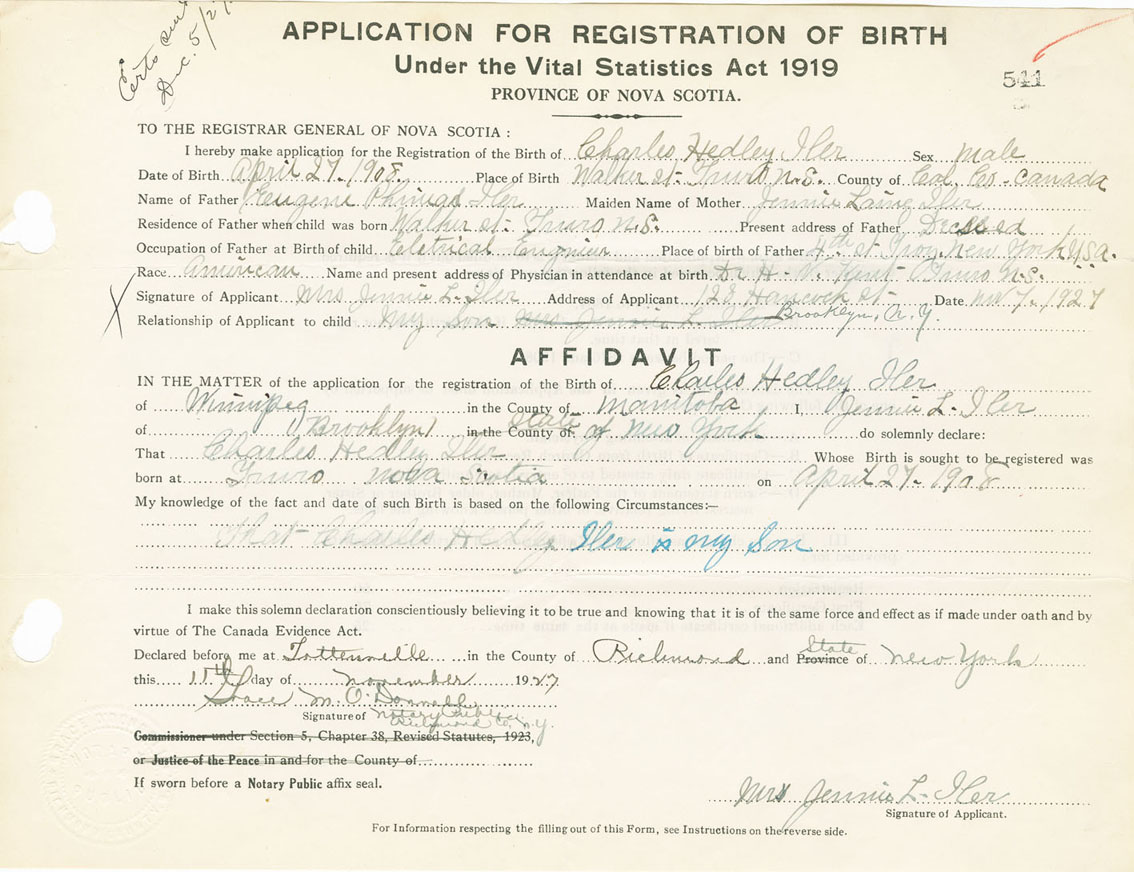 Certs sent
Dec. 5/27
APPLICATION FOR REGISTRATION OF BIRTH
Under the Vital Statistics Act 1919
541
PROVINCE OF NOVA SCOTIA.
TO THE REGISTRAR GENERAL OF NOVA SCOTIA :
I hereby make application for the Registration of the Birth of Charles Hedley Iler Sex male
Date of Birth April 27. 1908. Place of Birth Walker st- Truro N.S. County of Col. Co - Canada
Name of Father Eugene Iler Maiden Name of Mother Jennie Laing Iler
Residence of Father when child was born Walker st- Truro N.S. Present address of Father
Occupation of Father at Birth of child Eletrical Place of birth of Father 4th st Troy New York U.S.A.
Race American Name and present address of Physician in attendance at birth Dr H. V. Kent Truro N.S.
Signature of Applicant Mrs Jennie L. Iler Address of Applicant 128 Hancock st- Date Nov 7. 1927
Relationship of Applicant to child My Son Mrs Jennie L. Iler Brooklyn, N.Y.
AFFIDAVIT
IN THE MATTER of the application for the registration of the Birth of Charles Hedley Iler
of Winnipeg in the County of Manitoba I, Jennie L. Iler
of (Brooklyn) in the County of State of New York do solemnly declare:
That Charles Hedley Iler Whose Birth is sought to be registered was
born at Truro Nova Scotia on April 27. 1908
My knowledge of the fact and date of such Birth is based on the following Circumstances:—
That Charles Hedley Iler is my Son
I make this solemn declaration conscientiously believing it to be true and knowing that it is of the same force and effect as if made under oath and by
virtue of The Canada Evidence Act.
Declared before me at Tottenville in the County of Richmond and Province State of New York
this 11th day of November 1927
Grace M. O'Donnell
Signature of Notary Public
Richmond Co. N.Y.
Commissioner under Section 5, Chapter 38, Revised Statutes, 1923,
or Justice of the Peace in and for the County of
If sworn before a Notary Public affix seal.
Mrs Jennie L. Iler
Signature of Applicant.
For Information respecting the filling out of this Form, see Instructions on the reverse side.